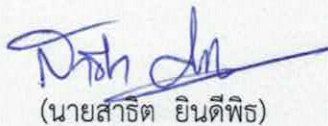 (นายสาธิต ยินดีพิธ)